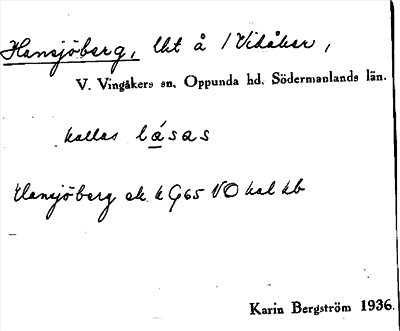 Hansjöberg, lht å /Vidåker,
V. Vingåkers sn, Oppunda hd, Södermanlands län.
kallas låsas
Hansjöberg ek k G65 VO kal kb
Karin Bergström 1936.